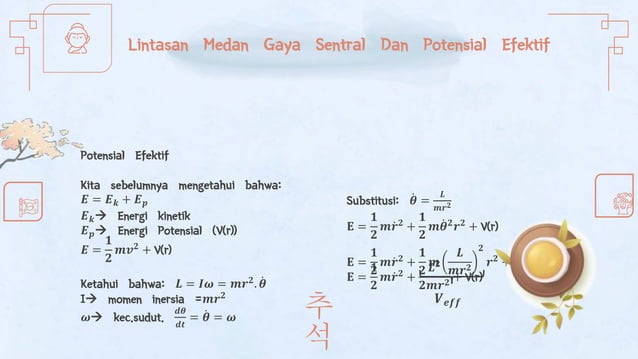 Lintasan Medan Gaya Sentral Dan Potensial Efektif
Potensial Efektif
Kita sebelumnya mengetahui bahwa:
𝑬 = 𝑬ₖ + 𝑬ₚ
𝑬ₖ→ Energi kinetik
𝑬ₚ→ Energi Potensial (V(r))
𝑬 = 1/2 𝒎𝒗² + V(r)
Ketahui bahwa: 𝑳 = 𝑰𝝎 = 𝒎𝒓².𝜽̇
I→ momen inersia =𝒎𝒓²
𝝎→ kec.sudut. 𝒅𝜽/𝒅𝒕 = 𝜽̇ = 𝝎
Substitusi: 𝜽̇ = 𝑳/𝒎𝒓²
E = 1/2 𝒎𝒓̇² + 1/2 𝒎𝜽̇²𝒓² + V(r)
E = 1/2 𝒎𝒓̇² + 1/2 𝒎(𝑳/𝒎𝒓²)² 𝒓² +
E = 1/2 𝒎𝒓̇² + 𝑳²/2𝒎𝒓² + V(r)
𝑽𝒆𝒇𝒇
추석